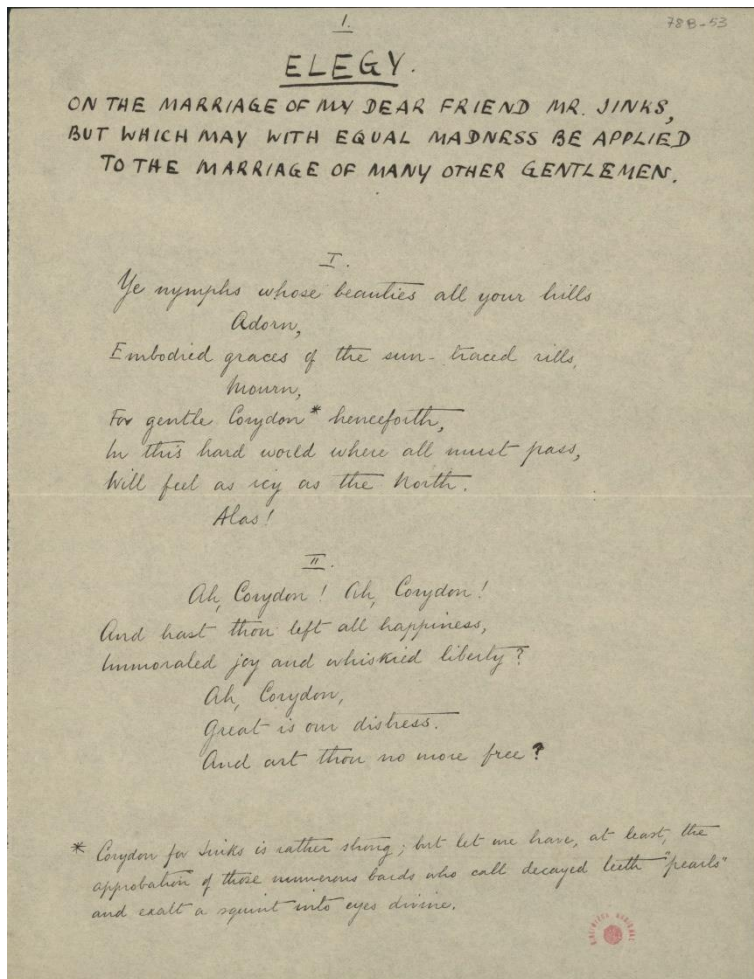 I.
78B-53
ELEGY.
ON THE MARRIAGE OF MY DEAR FRIEND MR. JINKS,
BUT WHICH MAY WITH EQUAL MADNESS BE APPLIED
TO THE MARRIAGE OF MANY OTHER GENTLEMEN.
I.
Ye nymphs whose beauties all your hills
Adorn,
Embodied graces of the sun-traced rills,
Mourn,
For gentle Corydon* henceforth,
In this hard world where all must pass,
Will feel as icy as the North.
Alas!
II.
Ah, Corydon! Ah, Corydon!
And hast thou left all happiness,
Unmoraled joy and whiskied liberty?
Ah, Corydon,
Great is our distress.
And art thou no more free?
* Corydon for Jinks is rather strong; but let me have, at least, the
approbation of those numerous bards who call decayed teeth "pearls"
and exalt a squint into eyes divine.
BIBLIOTECA NACIONAL